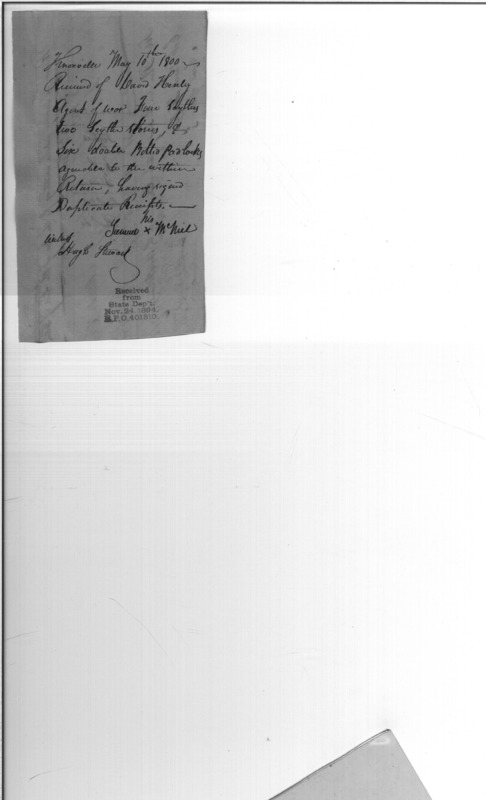 Knoxville May 10th 1800
Received of David Henly
Agent of war Four Scythes
two Scythe stones, &
Six double Bolted padlocks
agreeable to the within
Return, having signed
Duplicate Receipts.
his
Samuel x McNeel
Hugh
Received
from
State Dep't.
Nov. 24, 1894.
R.P.O. 401310.